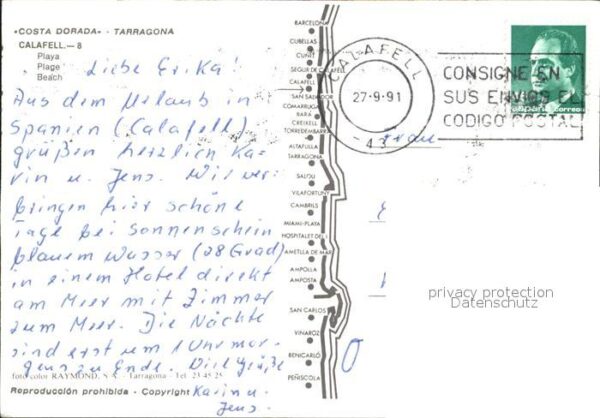 «COSTA DORADA» - TARRAGONA
CALAFELL.— 8
Playa
Plage
Beach
Liebe Erika!
Aus dem Urlaub in
Spanien (Calafell)
grüßen herzlich Ka-
rin u. Jens. Wir ver-
bringen hier schöne
Tage bei Sonnenschein
blauem Wasser (28 Grad)
in einem Hotel direkt
am Meer mit Zimmer
zum Meer. Die Nächte
sind erst um 1 Uhr mor-
gens zu Ende. Viel Grüße
Karin u.
Jens.
foto color RAYMOND, S. A. - Tarragona - Tel. 23 45 25
Reproducción prohibida - Copyright
BARCELONA
CUBELLAS
CUNIT
SEGUR DE CALAFELL
CALAFELL
SAN SALVADOR
COMARRUGA
BARA
CREIXELL
TORREDEMBARRA
ALTAFULLA
TARRAGONA
SALOU
VILAFORTUNY
CAMBRILS
MIAMI-PLAYA
HOSPITALET DEL I.
AMETLLA DE MAR
AMPOLLA
AMPOSTA
SAN CARLOS
VINAROZ
BENICARLÓ
PEÑISCOLA
CALAFELL
27-9-91
- 43
CONSIGNE EN
SUS ENVIOS EL
CODIGO POSTAL
España correos
Frau
privacy protection
Datenschutz